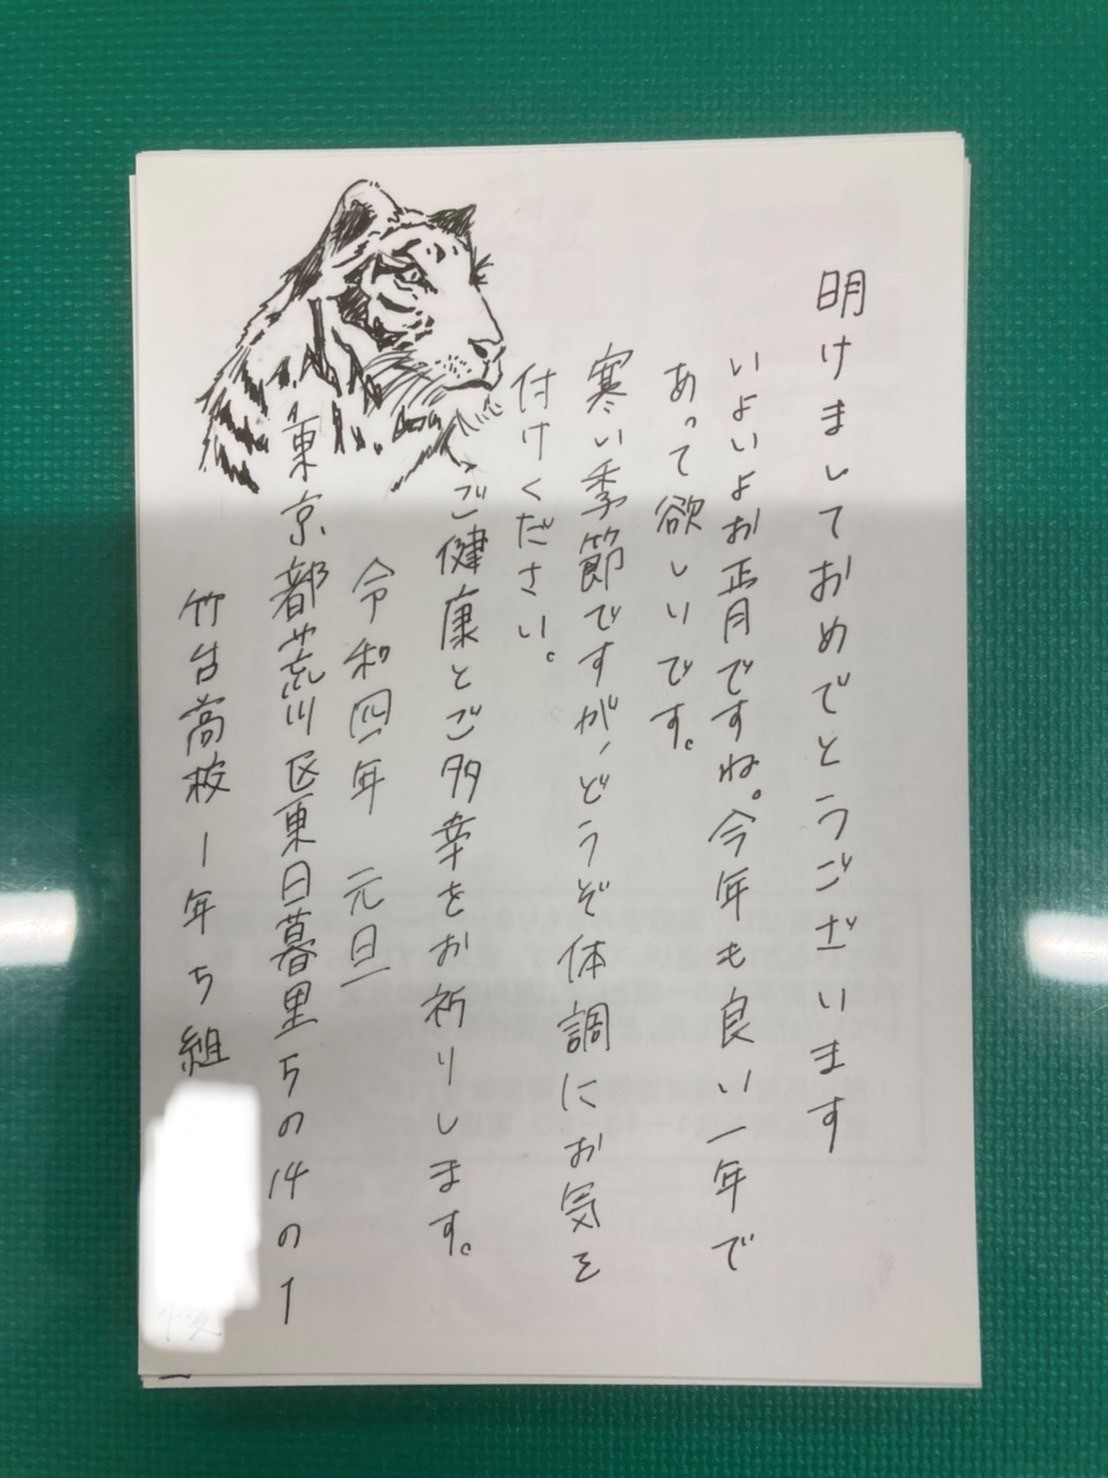 明けましておめでとうございます
いよいよお正月ですね。今年も良い一年で
あって欲しいです。
寒い季節ですが、どうぞ体調にお気を
付けください。
ご健康とご多幸をお祈りします。
令和四年 元旦
東京都荒川区東日暮里5の14の1
竹台高校1年5組